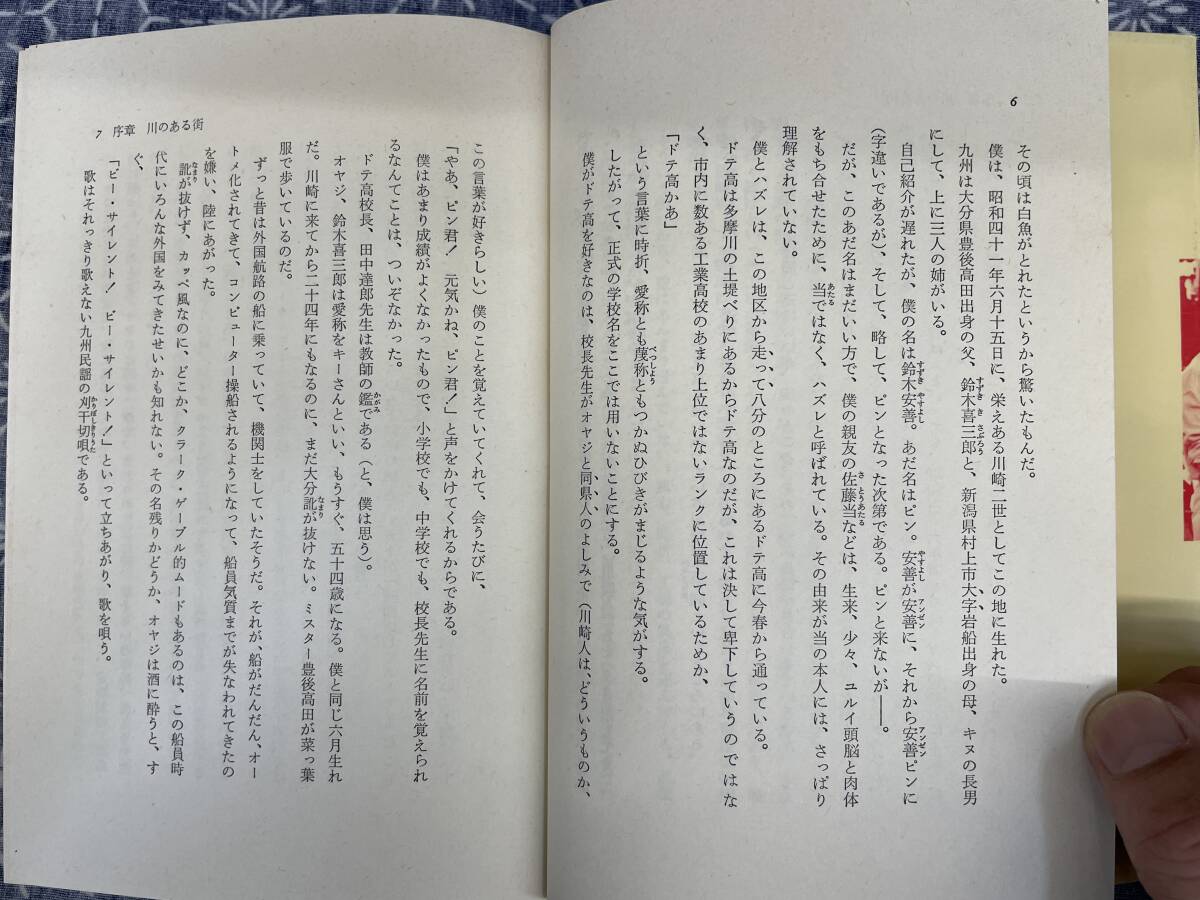 6
その頃は白魚がとれたというから驚いたもんだ。
僕は、昭和四十一年六月十五日に、栄えある川崎二世としてこの地に生れた。
九州は大分県豊後高田出身の父、鈴木喜三郎と、新潟県村上市大字岩船出身の母、キヌの長男
にして、上に三人の姉がいる。
自己紹介が遅れたが、僕の名は鈴木安善。あだ名はピン。安善が安善に、それから安善ピンに
(字違いであるが)、そして、略して、ピンとなった次第である。ピンと来ないが――。
だが、このあだ名はまだいい方で、僕の親友の佐藤当などは、生来、少々、ユルイ頭脳と肉体
をもち合せたために、当ではなく、ハズレと呼ばれている。その由来が当の本人には、さっぱり
理解されていない。
僕とハズレは、この地区から走って八分のところにあるドテ高に今春から通っている。
ドテ高は多摩川の土堤べりにあるからドテ高なのだが、これは決して卑下していうのではな
く、市内に数ある工業高校のあまり上位ではないランクに位置しているためか、
「ドテ高かあ」
という言葉に時折、愛称とも蔑称ともつかぬひびきがまじるような気がする。
したがって、正式の学校名をここでは用いないことにする。
僕がドテ高を好きなのは、校長先生がオヤジと同県人のよしみで(川崎人は、どういうものか、
この言葉が好きらしい)僕のことを覚えていてくれて、会うたびに、
「やあ、ピン君! 元気かね、ピン君!」と声をかけてくれるからである。
僕はあまり成績がよくなかったもので、小学校でも、中学校でも、校長先生に名前を覚えられ
るなんてことは、ついぞなかった。
ドテ高校長、田中達郎先生は教師の鑑である(と、僕は思う)。
オヤジ、鈴木喜三郎は愛称をキーさんといい、もうすぐ、五十四歳になる。僕と同じ六月生れ
だ。川崎に来てから二十四年にもなるのに、まだ大分訛が抜けない。ミスター豊後高田が菜っ葉
服で歩いているのだ。
ずっと昔は外国航路の船に乗っていて、機関士をしていたそうだ。それが、船がだんだん、オー
トメ化されてきて、コンピューター操船されるようになって、船員気質までが失なわれてきたの
を嫌い、陸にあがった。
訛が抜けず、カッペ風なのに、どこか、クラーク・ゲーブル的ムードもあるのは、この船員時
代にいろんな外国をみてきたせいかも知れない。その名残りかどうか、オヤジは酒に酔うと、す
ぐ、
「ビー・サイレント! ビー・サイレント!」といって立ちあがり、歌を唄う。
歌はそれっきり歌えない九州民謡の刈干切唄である。
7 序章 川のある街